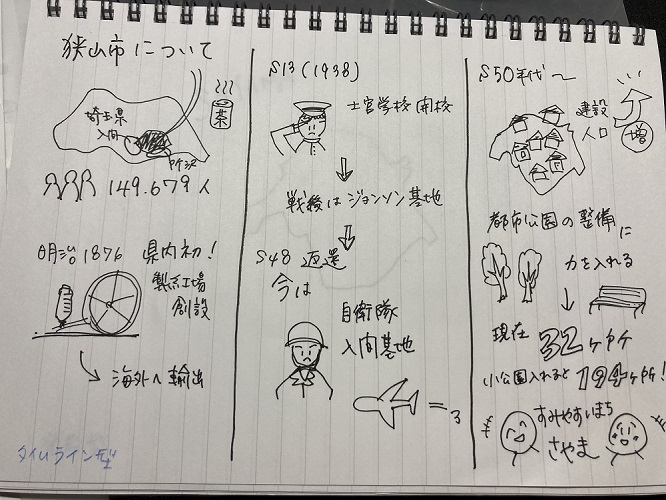 狭山市について
埼玉県
入間
茶
149.679人
明治1876 県内初!
製糸工場
創設
海外へ輸出
タイムライン型
S13(1938)
士官学校開校
戦後はジョンソン基地
S48 返還
今は
自衛隊
入間基地
S50年代〜
建設
人口 増
都市公園の整備に
力を入れる
現在 32ヶ所
小公園入れると194ヶ所!
すみやすいまち
さやま